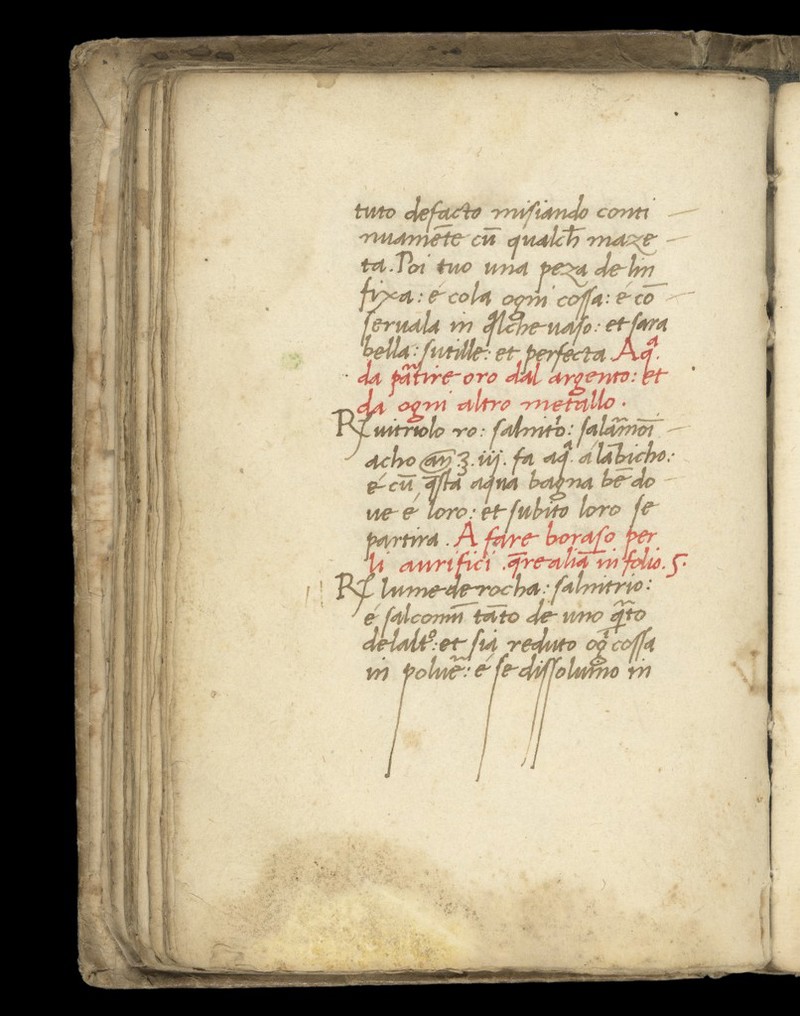 tuto defacto misiando conti
nuamēte cū qualch̄ maze
ta. Poi tuo una peza de lin
fixa: é cola ogni cossa: é cō
seruala in q̄lche uaso: et sara
bella: sutille: et perfecta. Aq̄.
da partire oro dal argento: et
da ogni altro metallo.
℞ uitriolo ro: salnitrо: salāmoī
acho an̄ ʒ. iij. fa aq̄. a lābicho:
é cū q̄sta aqua bagna bē do
ue é loro: et subito loro se
partira. A fare boraso per
li aurifici. q̄re aliā in folio. 5.
℞ lume de rocha: salnitrio:
é salcomū tāto de uno q̄to
delalt°: et sia reduto oḡ cossa
in poluē: é se dissoluino in